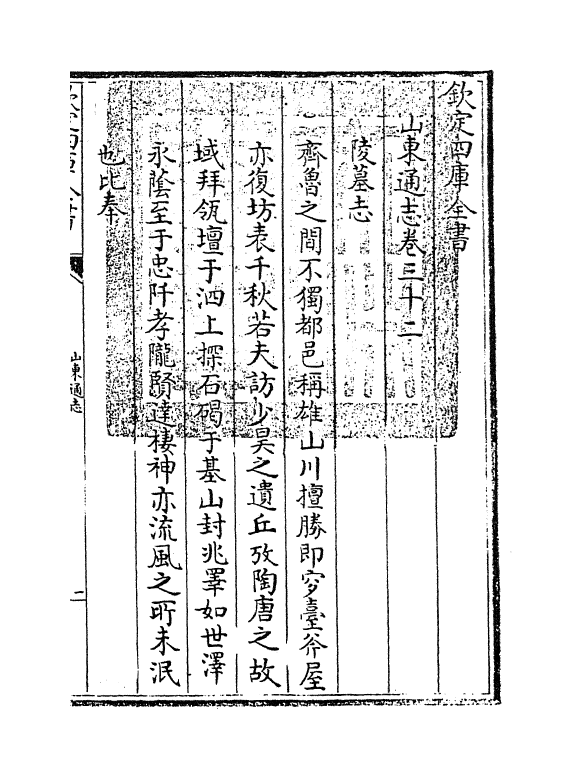 欽定四庫全書
山東通志卷三十二
陵墓志
齊魯之間不獨都邑稱雄山川擅勝即穸臺斧屋
亦復坊表千秋若夫訪少昊之遺丘攷陶唐之故
域拜瓴壇于泗上探石碣于基山封兆睪如世澤
永蔭至于忠阡孝隴賢達棲神亦流風之所未泯
也比奉
山東通志